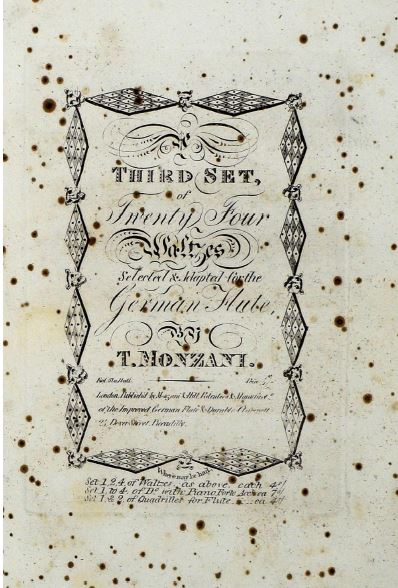 A
THIRD SET,
of
Twenty Four
Waltzes
Selected & Adapted for the
German Flute,
BY
T. MONZANI.
Ent. Sta. Hall.
London, Publish'd by Monzani & Hill, Patentees & Manufact.
of the Improved German Flute & Clarinett
24 Dover Street, Piccadilly.
Where may be had.
Set 1,2,4, of Waltzes, as above each 4s/
Set 1, to 4, of Do. with Piano Forte Acc. ea 7s/
Set 1 & 2 of Quadrilles for Flute ea 4s/